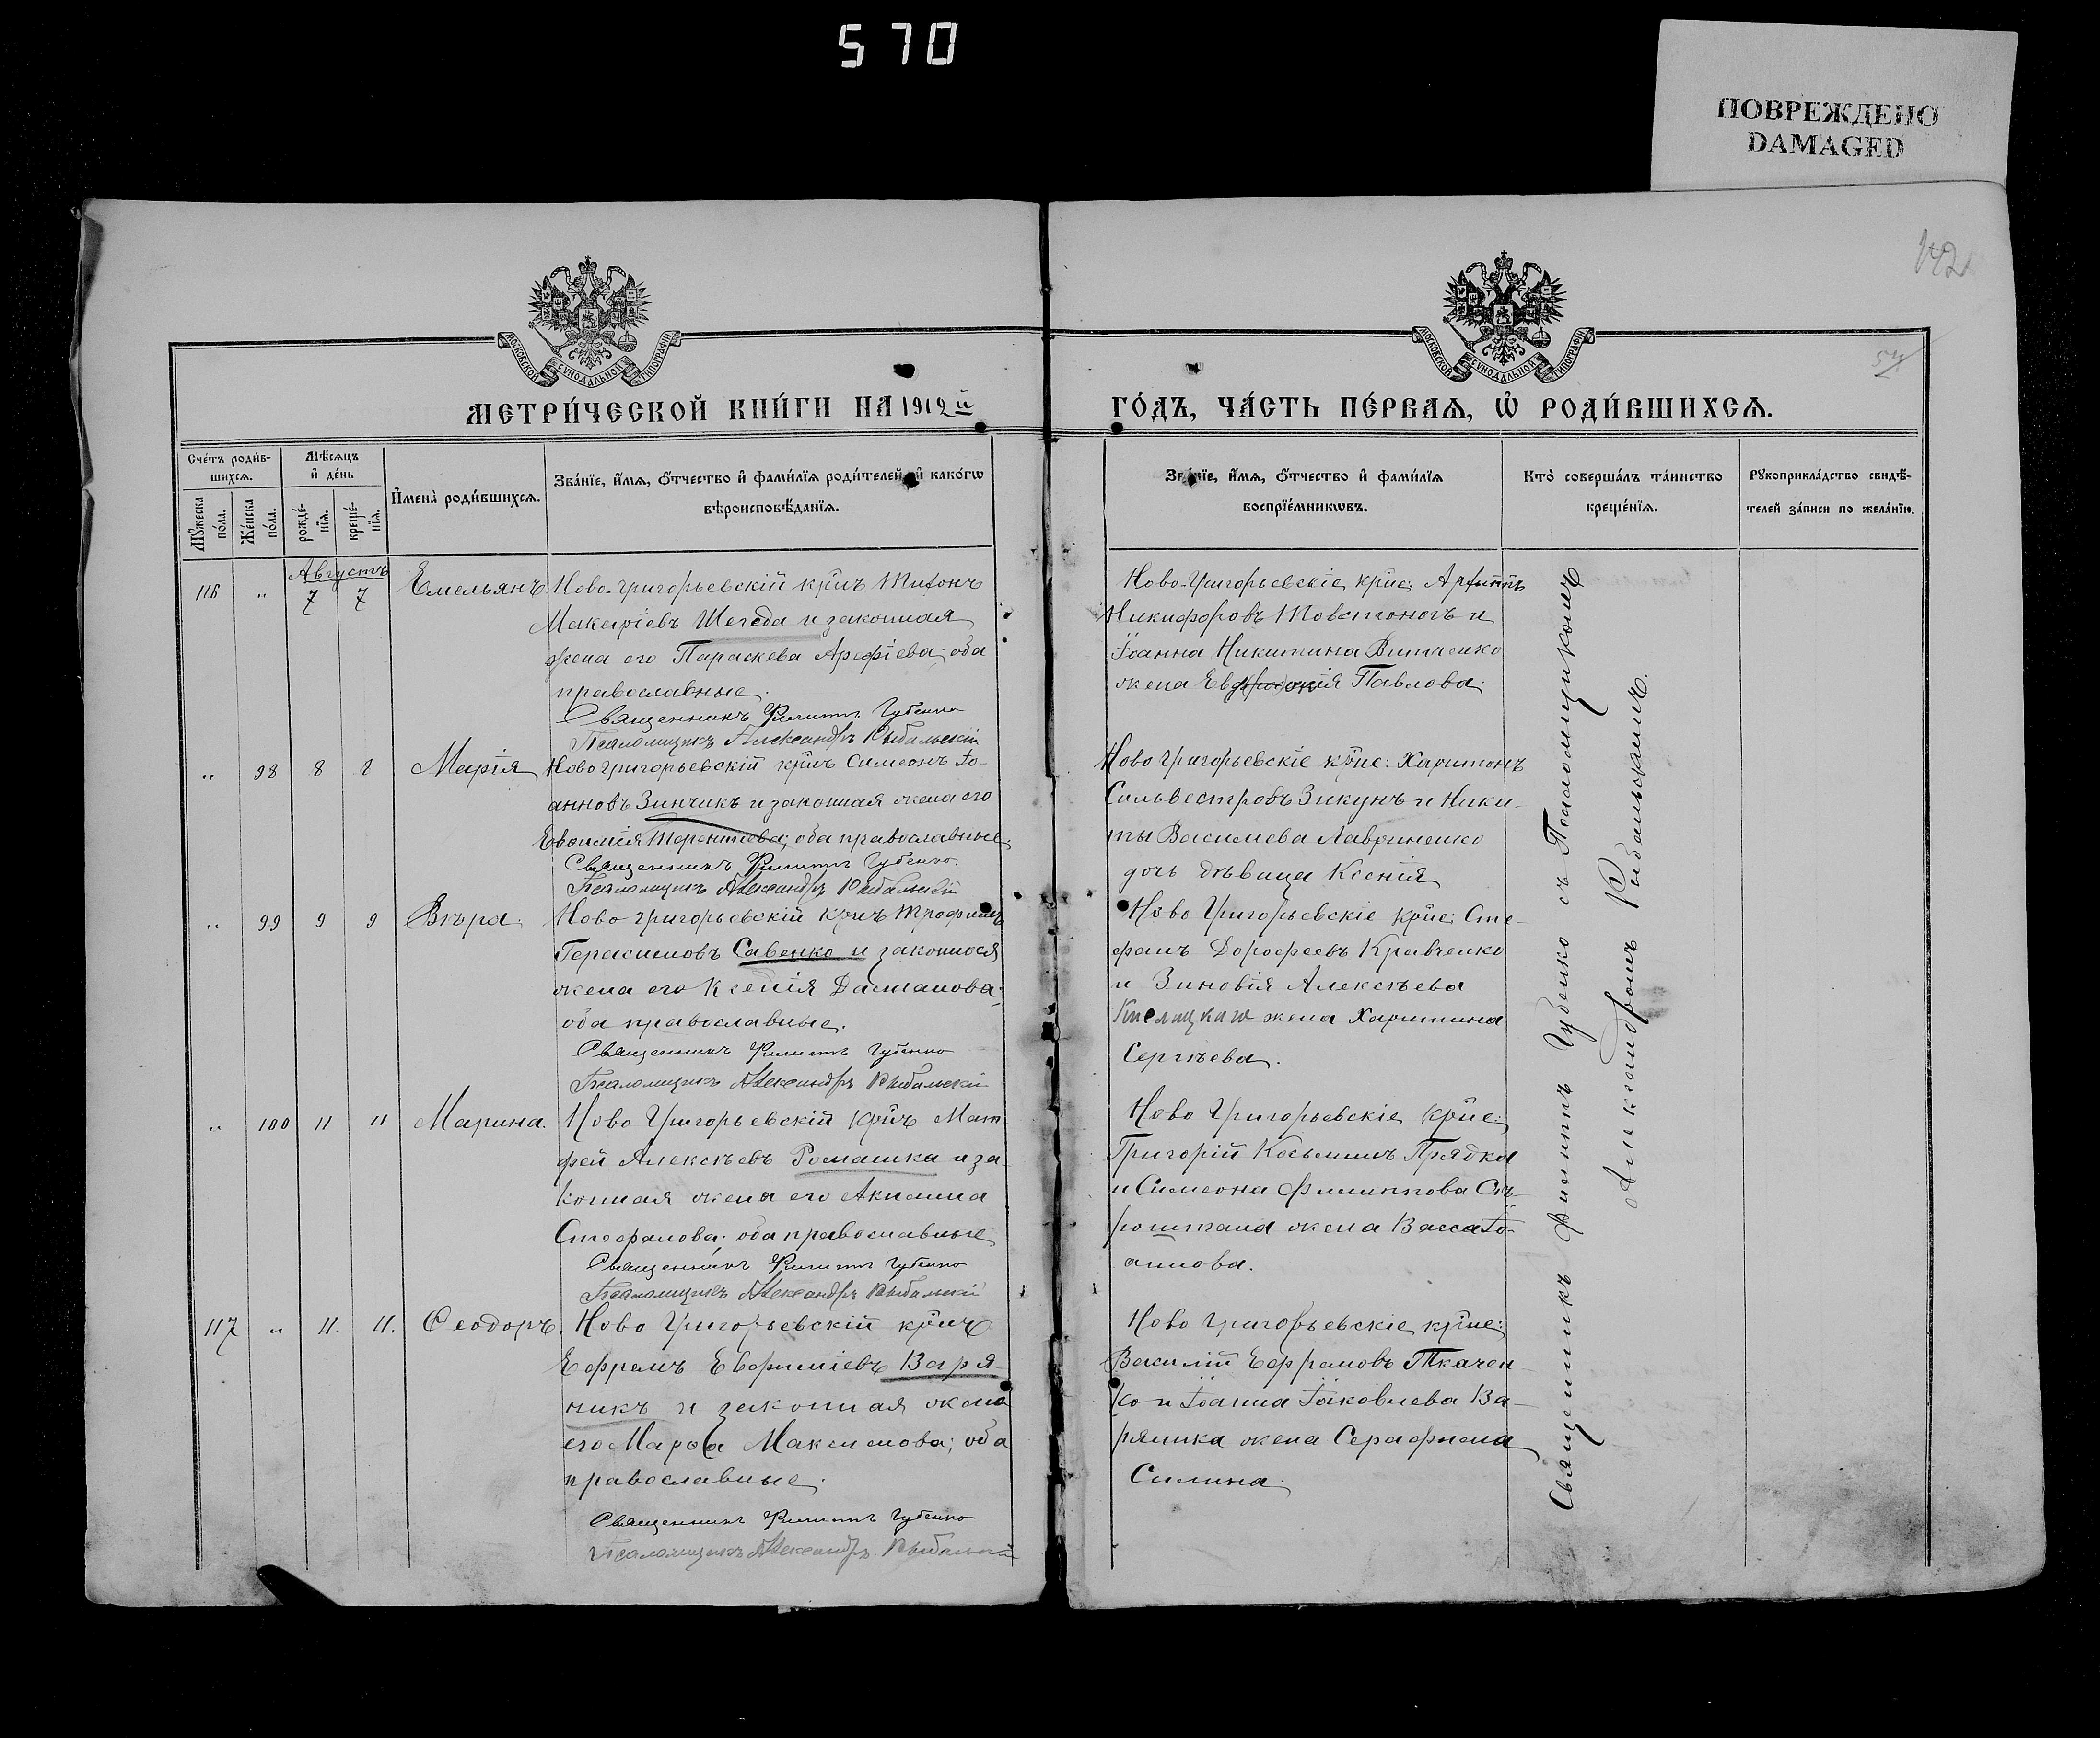 570
ПОВРЕЖДЕНО
DAMAGED
142
54
МОСКОВСКОЙ СУНОДАЛЬНОЙ ТИПОГРАФІИ
МОСКОВСКОЙ СУНОДАЛЬНОЙ ТИПОГРАФІИ
МЕТРИ́ЧЕСКОЙ КНИ́ГИ НА 1912й
ГО́ДЪ, ЧА́СТЬ ПЕ́РВАѦ, Ѡ҆ РОДИ́ВШИХСѦ.
Сче́тъ роди́в-
шихсѧ.
Мꙋ́жеска
по́ла.
Же́нска
по́ла.
Мѣ́сѧцъ
и҆ де́нь
рожде́-
нїѧ.
креще́-
нїѧ.
И҆мена̀ роди́вшихсѧ.
Зва́нїе, и҆́мѧ, ѻ҆́тчество и҆ фами́лїѧ роди́телей и҆ како́гѡ
вѣроисповѣ́данїѧ.
Зва́нїе, и҆́мѧ, ѻ҆́тчество и҆ фами́лїѧ
воспрїе́мникѡвъ.
Кто̀ соверша́лъ та́инство
креще́нїѧ.
Рꙋкоприкла́дство свидѣ́-
телей за́писи по жела́нїю.
Августъ
116 " 7 7 Емельянъ Ново-Григорьевскій кр̃нъ Титонъ
Макаріевъ Шегеда и законная
жена его Параскева Арефіева; оба
православные.
Священникъ Филиппъ Губенко
Псаломщикъ Александръ Рыбальскій
Ново-Григорьевскіе кр̃не: Архиппъ
Никифоровъ Товстоногъ и
Іоанна Никитина Витченко
жена Евфросинія Павлова.
" 98 8 8 Марія Ново Григорьевскій кр̃нъ Симеонъ Іо-
анновъ Зинчикъ и законная жена его
Евѳимія Терентіева; оба православные.
Священникъ Филиппъ Губенко.
Псаломщикъ Александръ Рыбальскій
Ново Григорьевскіе кр̃не: Харитонъ
Сильвестровъ Зикунъ и Ники-
ты Василиева Лавриненко
дочь дѣвица Ксенія
" 99 9 9 Вѣра. Ново Григорьевскій кр̃нъ Трофимъ
Герасимовъ Савенко и законная
жена его Ксенія Даміанова;
оба православные.
Священникъ Филиппъ Губенко
Псаломщикъ Александръ Рыбальскій
Ново Григорьевскіе кр̃не: Сте-
фанъ Дорофеевъ Кравченко
и Зиновія Алексѣева
жена Харитина
Сергѣева.
" 100 11 11 Марина. Ново Григорьевскій кр̃нъ Мат-
фей Алексѣевъ Ромашка и за-
конная жена его Акилина
Стефанова; оба православные
Священникъ Филиппъ Губенко
Псаломщикъ Александръ Рыбальскій
Ново Григорьевскіе кр̃не:
Григорій Косьминъ Прядка
и Симеона Филиппова Ск-
жена Васса Іо-
аннова.
117 " 11. 11. Ѳеодоръ. Ново Григорьевскій кр̃нъ
Ефремъ Евфиміевъ Варя-
никъ и законная жена
его Марѳа Максимова; оба
православные.
Священникъ Филиппъ Губенко
Псаломщикъ Александръ Рыбальскій
Ново Григорьевскіе кр̃не:
Василій Ефремовъ Ткачен-
ко и Іоанна Іаковлева Ва-
ряника жена Серафима
Силина.
Священникъ Филиппъ Губенко съ Псаломщикомъ
Александромъ Рыбальскимъ.